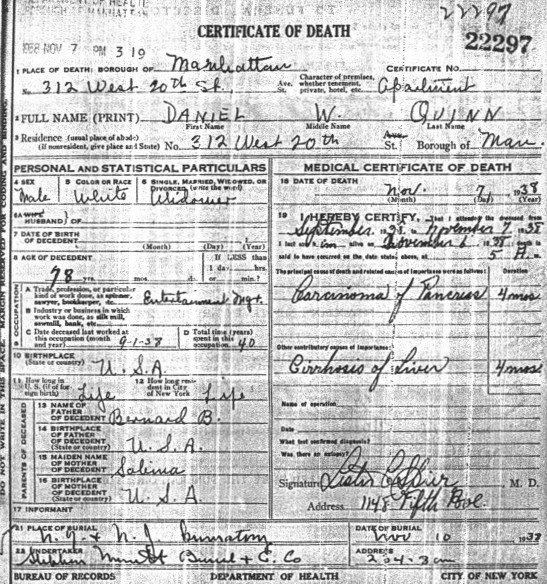 DEPARTMENT OF HEALTH
22297
1938 NOV 7 PM 3 10
CERTIFICATE OF DEATH
22297
1 PLACE OF DEATH: BOROUGH OF Manhattan CERTIFICATE No.
No. 312 West 20th St. Ave. St. Character of premises, whether tenement, private, hotel, etc. Apartment
2 FULL NAME (PRINT) DANIEL W. QUINN
First Name Middle Name Last Name
3 Residence (usual place of abode) (If nonresident, give place and State) No. 312 West 20th Ave. St. Borough of Man.
PERSONAL AND STATISTICAL PARTICULARS
4 SEX Male
5 COLOR OR RACE White
6 SINGLE, MARRIED, WIDOWED, OR DIVORCED, (write the word) Widower
6A WIFE HUSBAND } OF
7 DATE OF BIRTH OF DECEDENT
(Month) (Day) (Year)
8 AGE OF DECEDENT 78 yrs. mos. da.
If LESS than 1 day, hrs. or min.?
9 OCCUPATION
A Trade, profession, or particular kind of work done, as spinner, sawyer, bookkeeper, etc. Entertainment Mgr.
B Industry or business in which work was done, as silk mill, sawmill, bank, etc.
C Date deceased last worked at this occupation (month and year) 9-1-38
D Total time (years) spent in this occupation 40
10 BIRTHPLACE (State or country) U.S.A.
11 How long in U.S. (if of foreign birth) Life
12 How long resident in City of New York Life
PARENTS OF DECEASED
13 NAME OF FATHER OF DECEDENT Bernard B.
14 BIRTHPLACE OF FATHER OF DECEDENT (State or country) U.S.A.
15 MAIDEN NAME OF MOTHER OF DECEDENT Salima
16 BIRTHPLACE OF MOTHER OF DECEDENT (State or country) U.S.A.
17 INFORMANT
MEDICAL CERTIFICATE OF DEATH
18 DATE OF DEATH Nov. 7 1938
(Month) (Day) (Year)
19 I HEREBY CERTIFY, That I attended the deceased from
September 1938 to November 7 1938
I last saw him alive on November 6 1938 death is
said to have occurred on the date stated above, at 5 A. m.
The principal cause of death and related causes of importance were as follows: Duration
Carcinoma of Pancreas 4 mos
Other contributory causes of importance:
Cirrhosis of Liver 4 mos
Name of operation
Date
What test confirmed diagnosis?
Was there an autopsy?
Signature M. D.
Address 1148 Fifth Ave.
21 PLACE OF BURIAL N.Y. & N.J. DATE OF BURIAL Nov 10 1938
22 UNDERTAKER Stephen Burial & C. Co ADDRESS
BUREAU OF RECORDS DEPARTMENT OF HEALTH CITY OF NEW YORK
DO NOT WRITE IN THIS SPACE. MARGIN RESERVED FOR CODING AND BINDING.